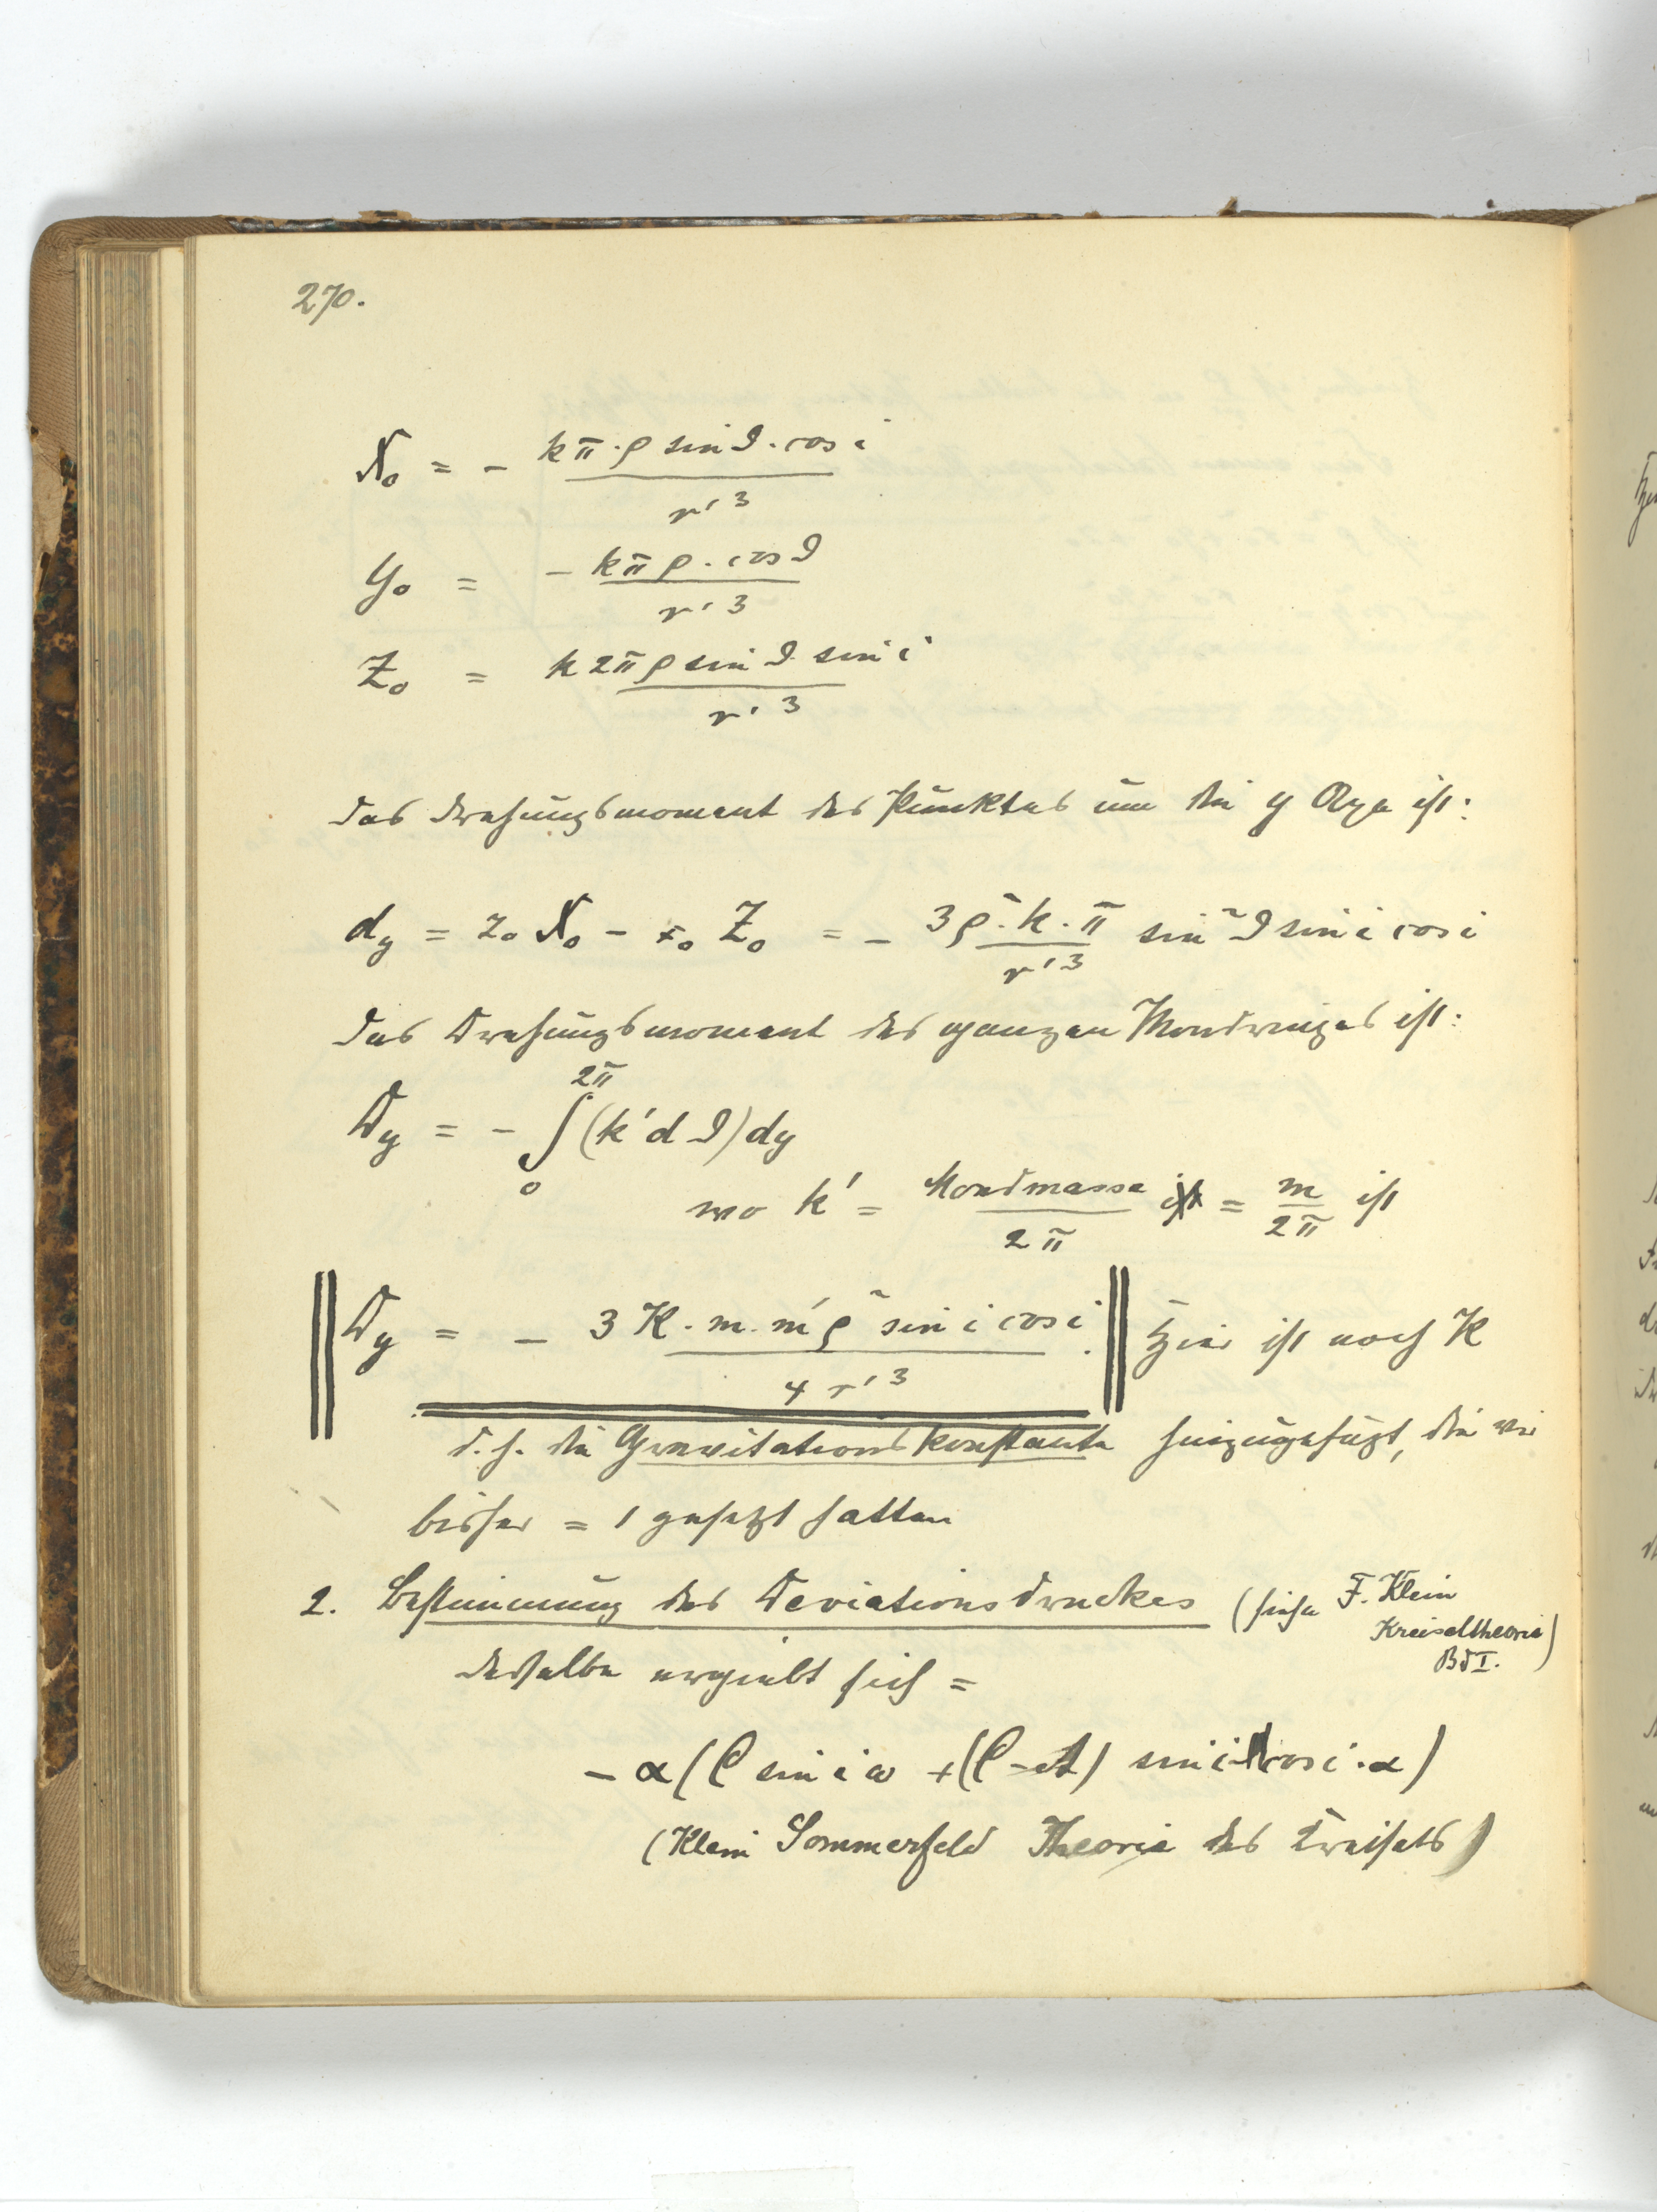 270.
X₀ = − kπ·ρ sin ϑ·cos i / r'³
Y₀ = − kπρ·cos ϑ / r'³
Z₀ = k2πρ sin ϑ sin i / r'³
Das Drehungsmoment des Punktes um die y Axe ist:
dy = z₀ X₀ − x₀ Z₀ = − 3ρ²·k·π / r'³ sin²ϑ sin i cos i
Das Drehungsmoment des ganzen Mondringes ist:
Dy = − ∫₀^2π (k'dϑ) dy
wo k' = Mondmasse / 2π = m / 2π ist
Dy = − 3K·m·m'ρ² sin i cos i / 4r'³. Hier ist noch K
d. h. die Gravitationskonstante hinzugefügt, die wir
bisher = 1 gesetzt hatten
2. Bestimmung des Deviationsdruckes (siehe F. Klein
Kreiseltheorie
Bd I.)
derselbe ergiebt sich =
− α (C sin i ω + (C − A) sin i cos i · α)
(Klein Sommerfeld Theorie des Kreisels)